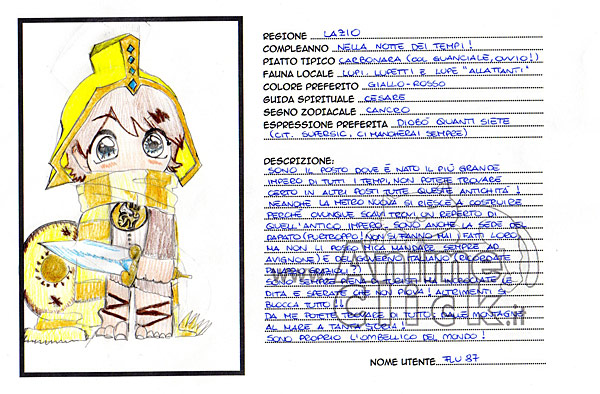 REGIONE LAZIO
COMPLEANNO NELLA NOTTE DEI TEMPI!
PIATTO TIPICO CARBONARA (COL GUANCIALE, OVVIO!)
FAUNA LOCALE LUPI, LUPETTI E LUPE "ALLATTANTI"
COLORE PREFERITO GIALLO-ROSSO
GUIDA SPIRITUALE CESARE
SEGNO ZODIACALE CANCRO
ESPRESSIONE PREFERITA DIO€Ò QUANTI SIETE
(CIT. SUPERSIC, CI MANCHERAI SEMPRE)
DESCRIZIONE:
SONO IL POSTO DOVE È NATO IL PIÙ GRANDE
IMPERO DI TUTTI I TEMPI, NON POTETE TROVARE
CERTO IN ALTRI POSTI TUTTE QUESTE ANTICHITÀ!
NEANCHE LA METRO NUOVA SI RIESCE A COSTRUIRE
PERCHÉ OVUNQUE SCAVI TROVI UN REPERTO DI
QUELL'ANTICO IMPERO. SONO ANCHE LA SEDE DEL
PAPATO (PURTROPPO! NON SI FANNO MAI I FATTI LORO
MA NON LI POSSO MICA MANDARE SEMPRE AD
AVIGNONE) E DEL GOVERNO ITALIANO (RICORDATE
PALAZZO GRAZIOLI?)
SONO SEMPRE PIENA DI TURISTI MA INCROCIATE LE
DITA E SPERATE CHE NON PIOVA! ALTRIMENTI SI
BLOCCA TUTTO!!!
DA ME POTETE TROVARE DI TUTTO, DALLE MONTAGNE
AL MARE A TANTA STORIA!
SONO PROPRIO L'OMBELLICO DEL MONDO!
NOME UTENTE FLU 87